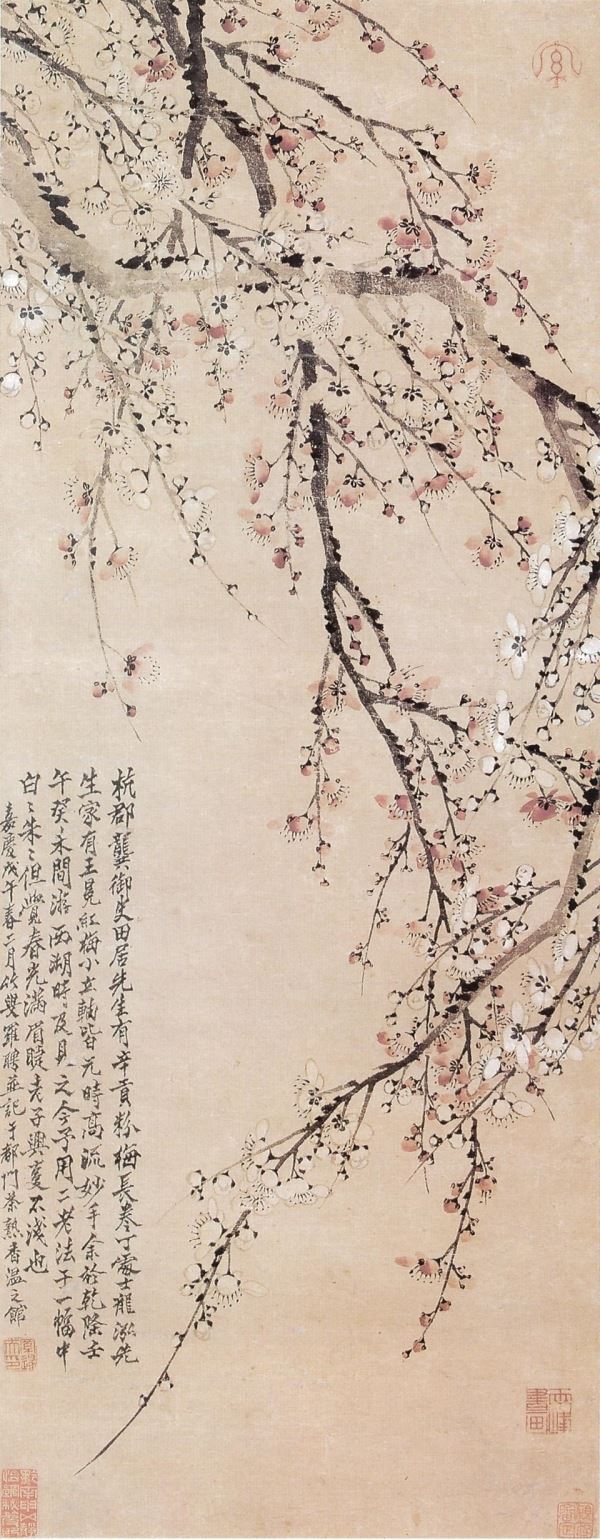 杭郡龔御史田居先生有辛貢粉梅長卷丁處士龍泓先
生家有王冕紅梅小立軸皆元時高流妙手余於乾隆壬
午癸未間游西湖時及見之今予用二老法于一幅中
白〻朱〻但覺春光滿眉睫老子興復不淺也
嘉慶戊午春二月 羅聘並記于都門茶熟香溫之館
兩峰
書畫